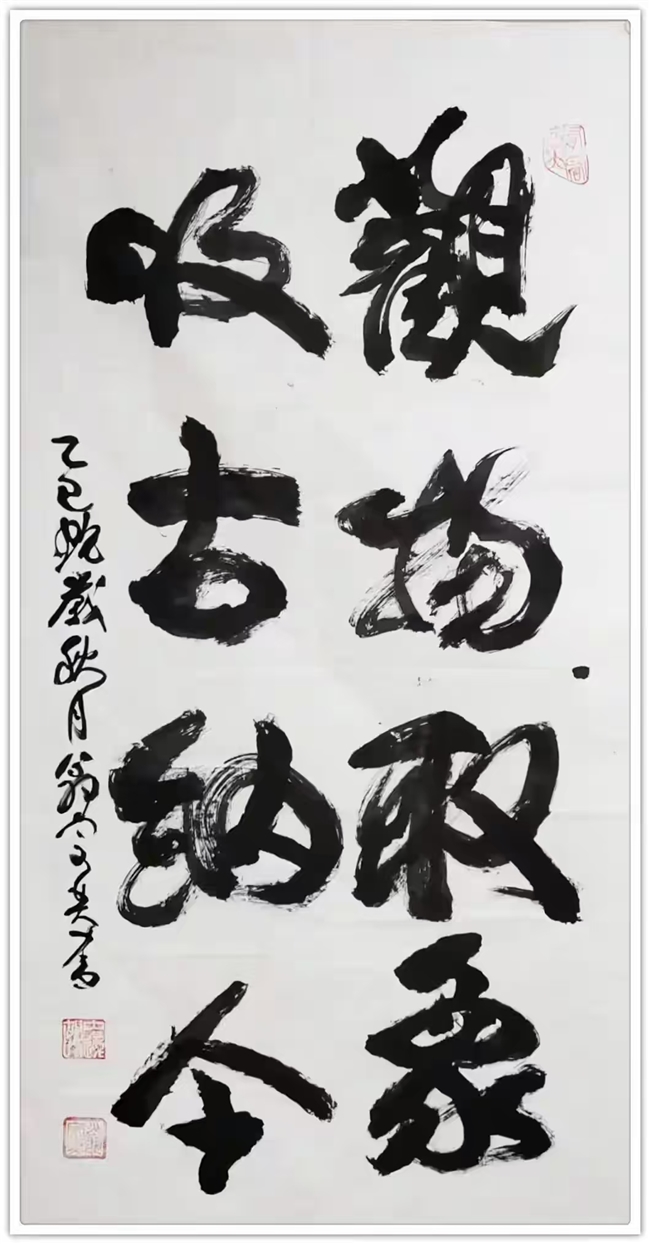 觀物取象
吸古納今
乙巳蛇歲秋月